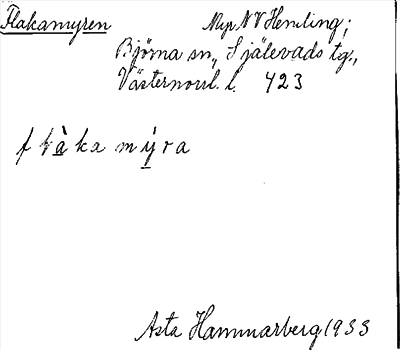 Flakamyren Myr NV Hemling;
Björna sn, Själevads tg.,
Västernorrl. l. 423
fłàka mýra
Asta Hammarberg 1933